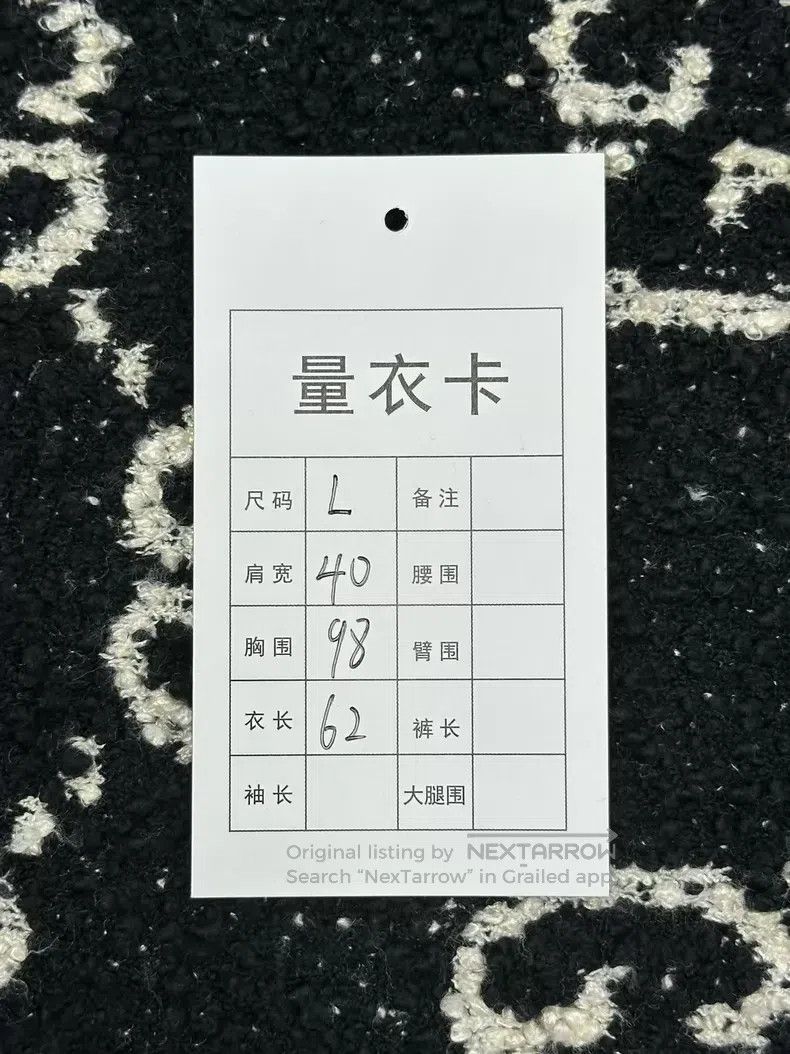 量衣卡
尺码 L 备注
肩宽 40 腰围
胸围 98 臂围
衣长 62 裤长
袖长 大腿围
Original listing by NEXTARROW
Search “NexTarrow” in Grailed app